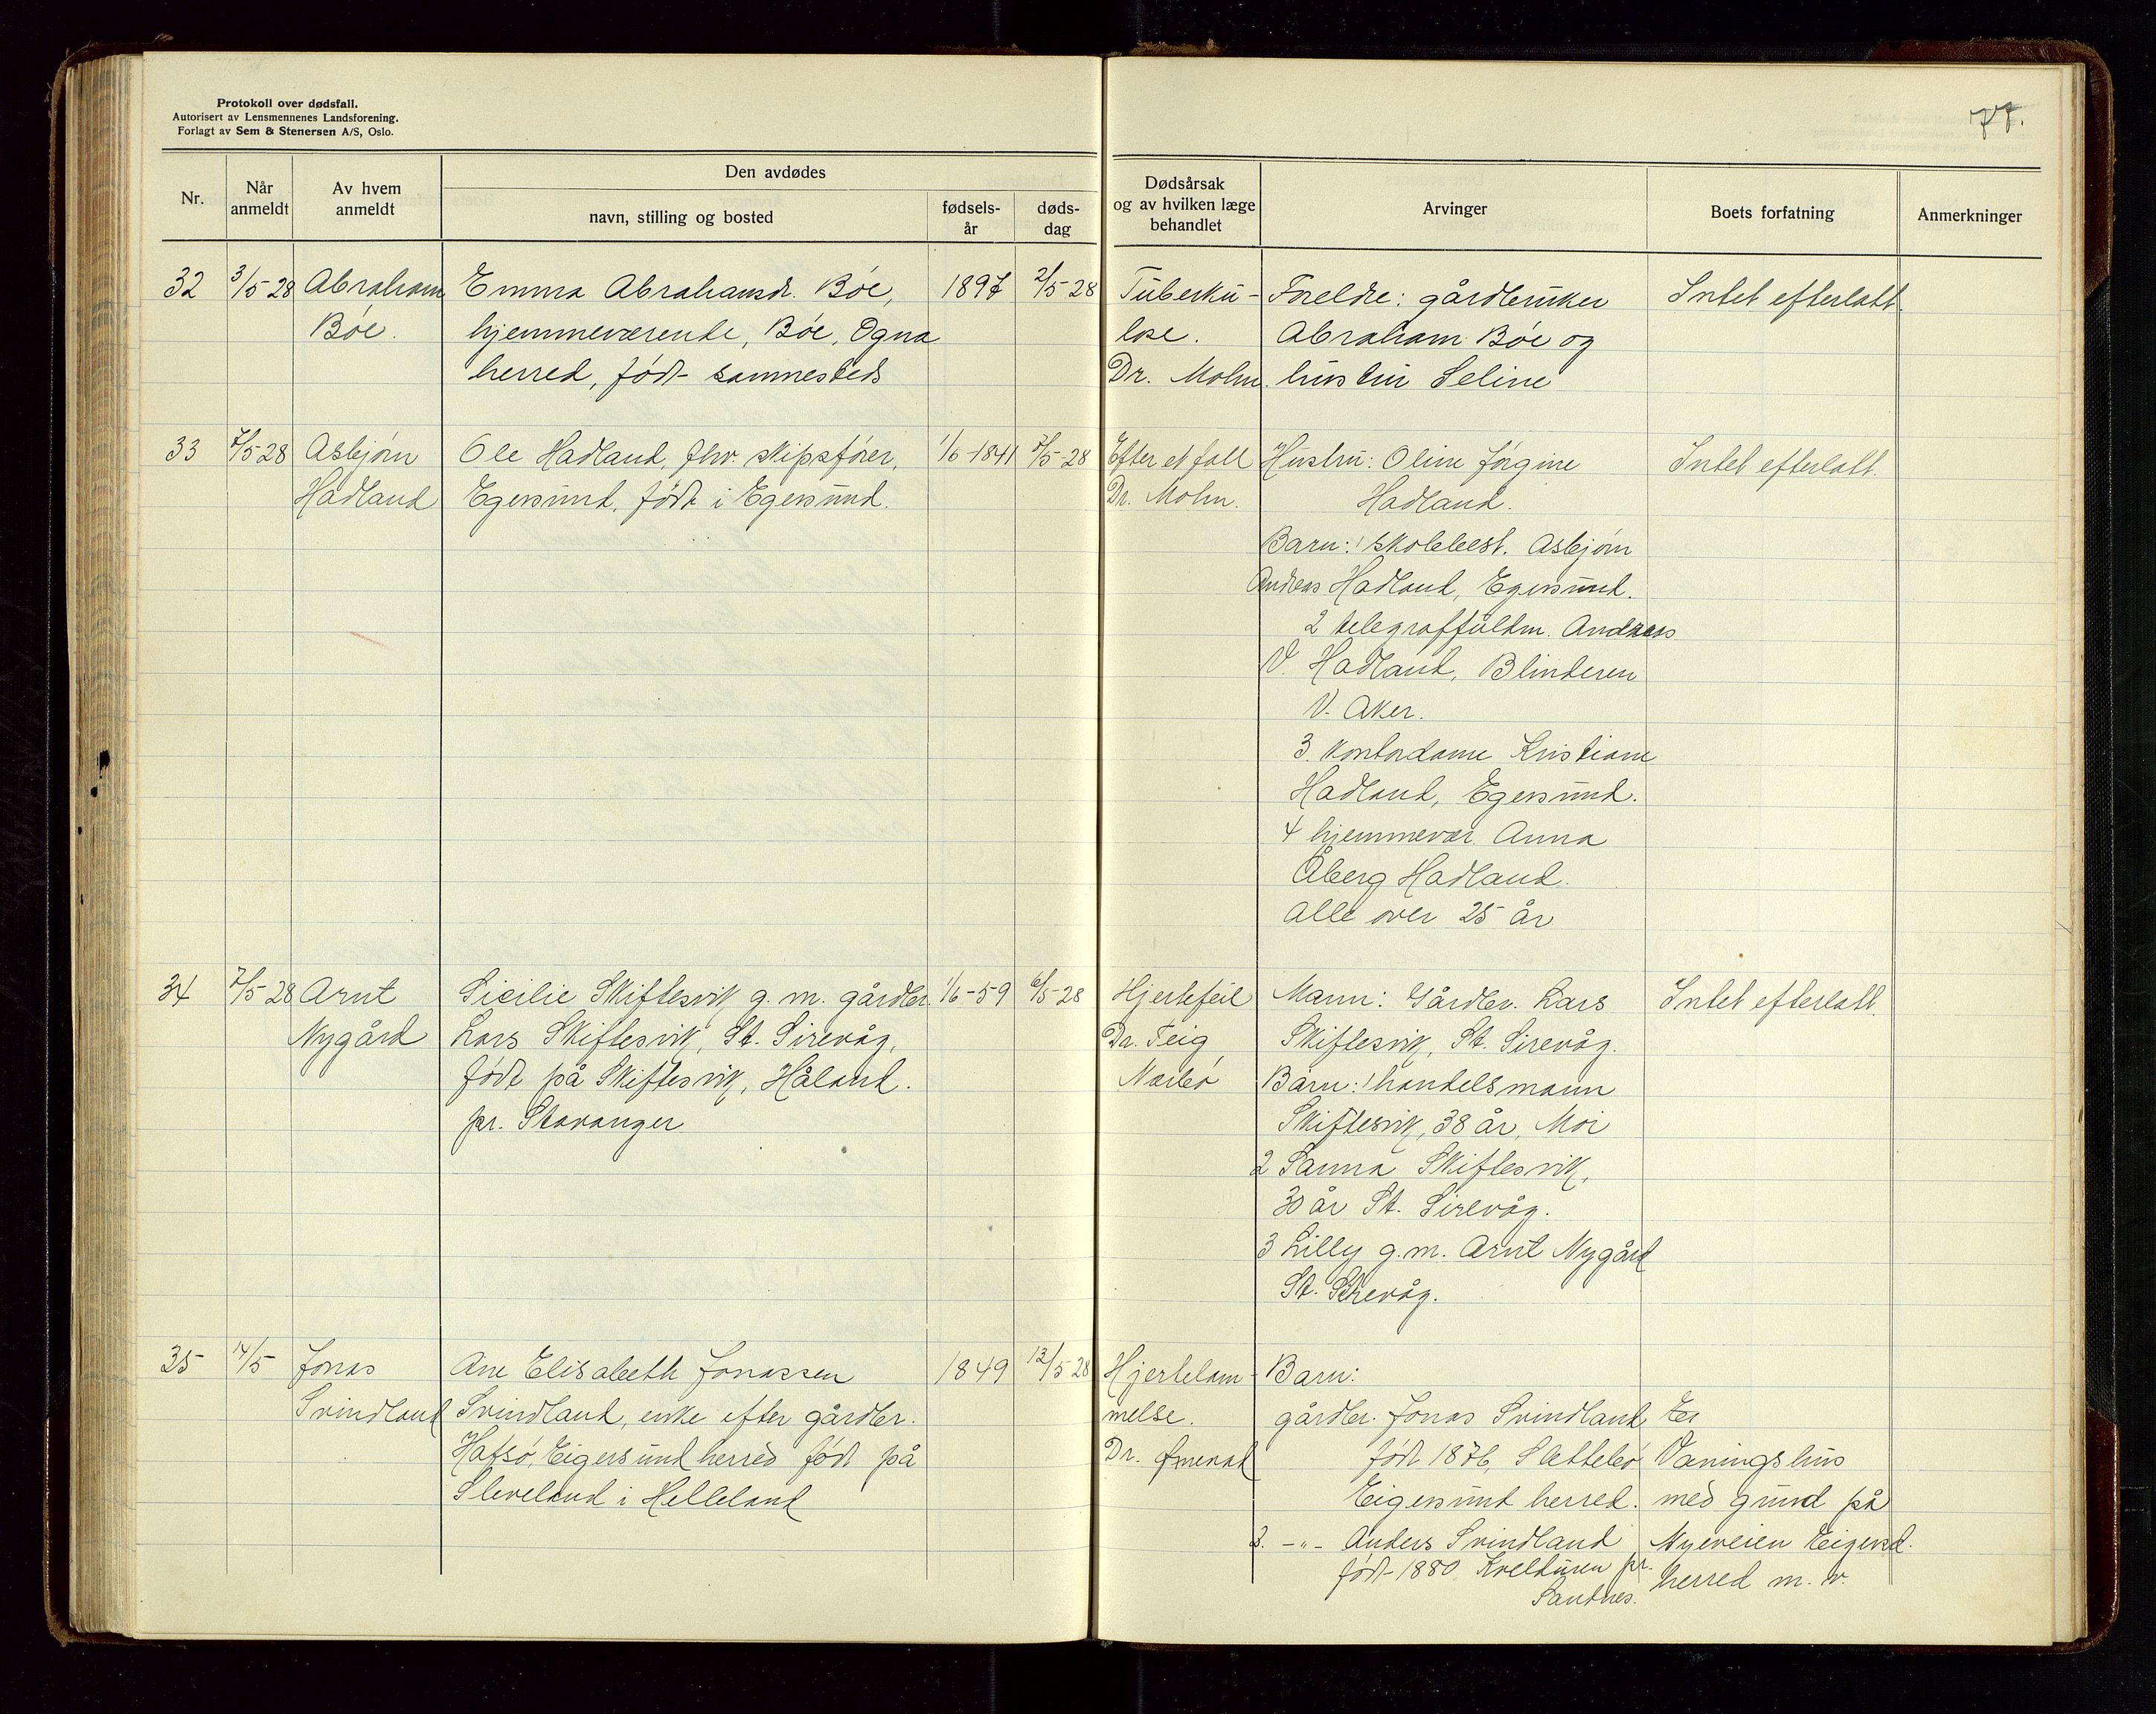 Protokoll over dødsfall.
Autorisert av Lensmennenes Landsforening.
Forlagt av Sem & Stenersen A/S, Oslo.
77.
Nr.
Når anmeldt
Av hvem anmeldt
Den avdødes
navn, stilling og bosted
fødsels-
år
døds-
dag
Dødsårsak
og av hvilken læge
behandlet
Arvinger
Boets forfatning
Anmerkninger
32 3/5-28 Abraham Emma Abrahamsdr. Bøe, 1897 2/5-28 Tuberku- Foreldre: gårdbruker Intet efterlatt.
Bøe. hjemmeværende, Bøe, Ogna lose. Abraham Bøe og
herred, født sammesteds Dr. Mohn. hustru Seline
33 7/5-28 Asbjørn Ole Hadland, fhv. skipsfører, 1/6-1841 7/5-28 Efter et fall Hustru: Oline Jørgine Intet efterlatt.
Hadland Egersund, født i Egersund. Dr. Mohn. Hadland.
Barn: 1 skolebest. Asbjørn
Andreas Hadland, Egersund.
2 telegraffuldm. Andreas
V. Hadland, Blinderen
V. Aker.
3. Kontordame Kristiane
Hadland, Egersund.
4 hjemmevær. Anna
Åberg Hadland.
Alle over 25 år
34 7/5-28 Arnt Sicilie Skiftesvik g. m. gårdbr. 1/6-59 6/5-28 Hjertefeil Mann: Gårdbr. Lars Intet efterlatt.
Nygård Lars Skiftesvik, St. Sirevåg, Dr. Teig Skiftesvik, St. Sirevåg.
født på Skiftesvik, Håland. Nærbø Barn: 1 handelsmann
pr. Stavanger Skiftesvik, 38 år, Moi
2 Sanna Skiftesvik,
30 år St. Sirevåg.
3 Lilly g.m. Arnt Nygård
St. Sirevåg.
35 14/5 Jonas Ane Elisabeth Jonassen 1849 12/5 28 Hjertelam- Barn:
Svindland Svindland, enke efter gårdbr. melse. gårdbr. Jonas Svindland Et
Hafsø, Eigersund herred født på Dr. født 1876, Slettebø Våningshus
Sleveland i Helleland Eigersund herred. med grund på
2. -"- Anders Svindland Nyeveien Eigersd.
født 1880 pr. herred m. v.
Sandnes.